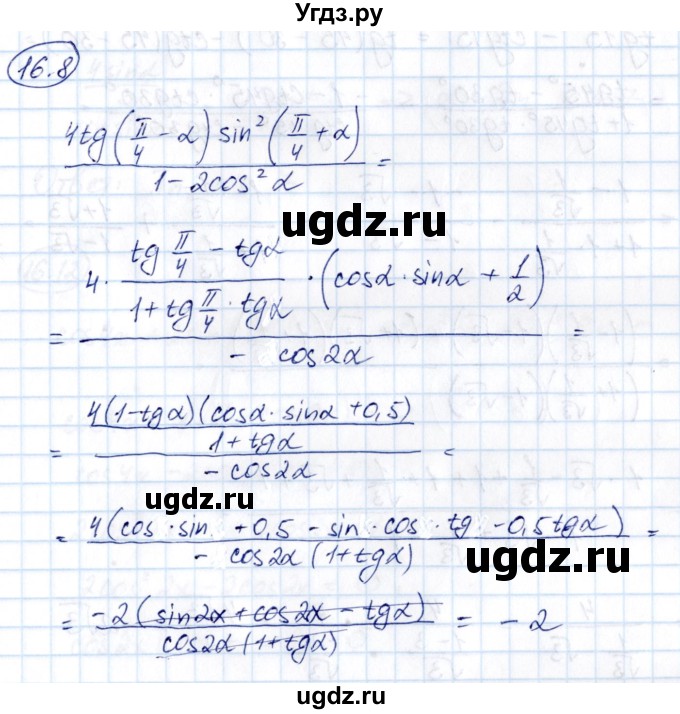 Угдз.ру
16.8
4tg(π/4 - α) sin²(π/4 + α) / (1 - 2cos²α) =
ugdz.ru
= 4 · (tg π/4 - tgα) / (1 + tg π/4 · tgα) · (cosα · sinα + 1/2) / (- cos2α) =
= 4(1 - tgα)(cosα · sinα + 0,5) / (1 + tgα) / (- cos2α) =
ugdz.ru
= 4(cos · sin + 0,5 - sin · cos · tg - 0,5tgα) / (- cos2α(1 + tgα)) =
ugdz.ru
= -2(sin2α + cos2α - tgα) / (cos2α(1 + tgα)) = - 2
ugdz.ru